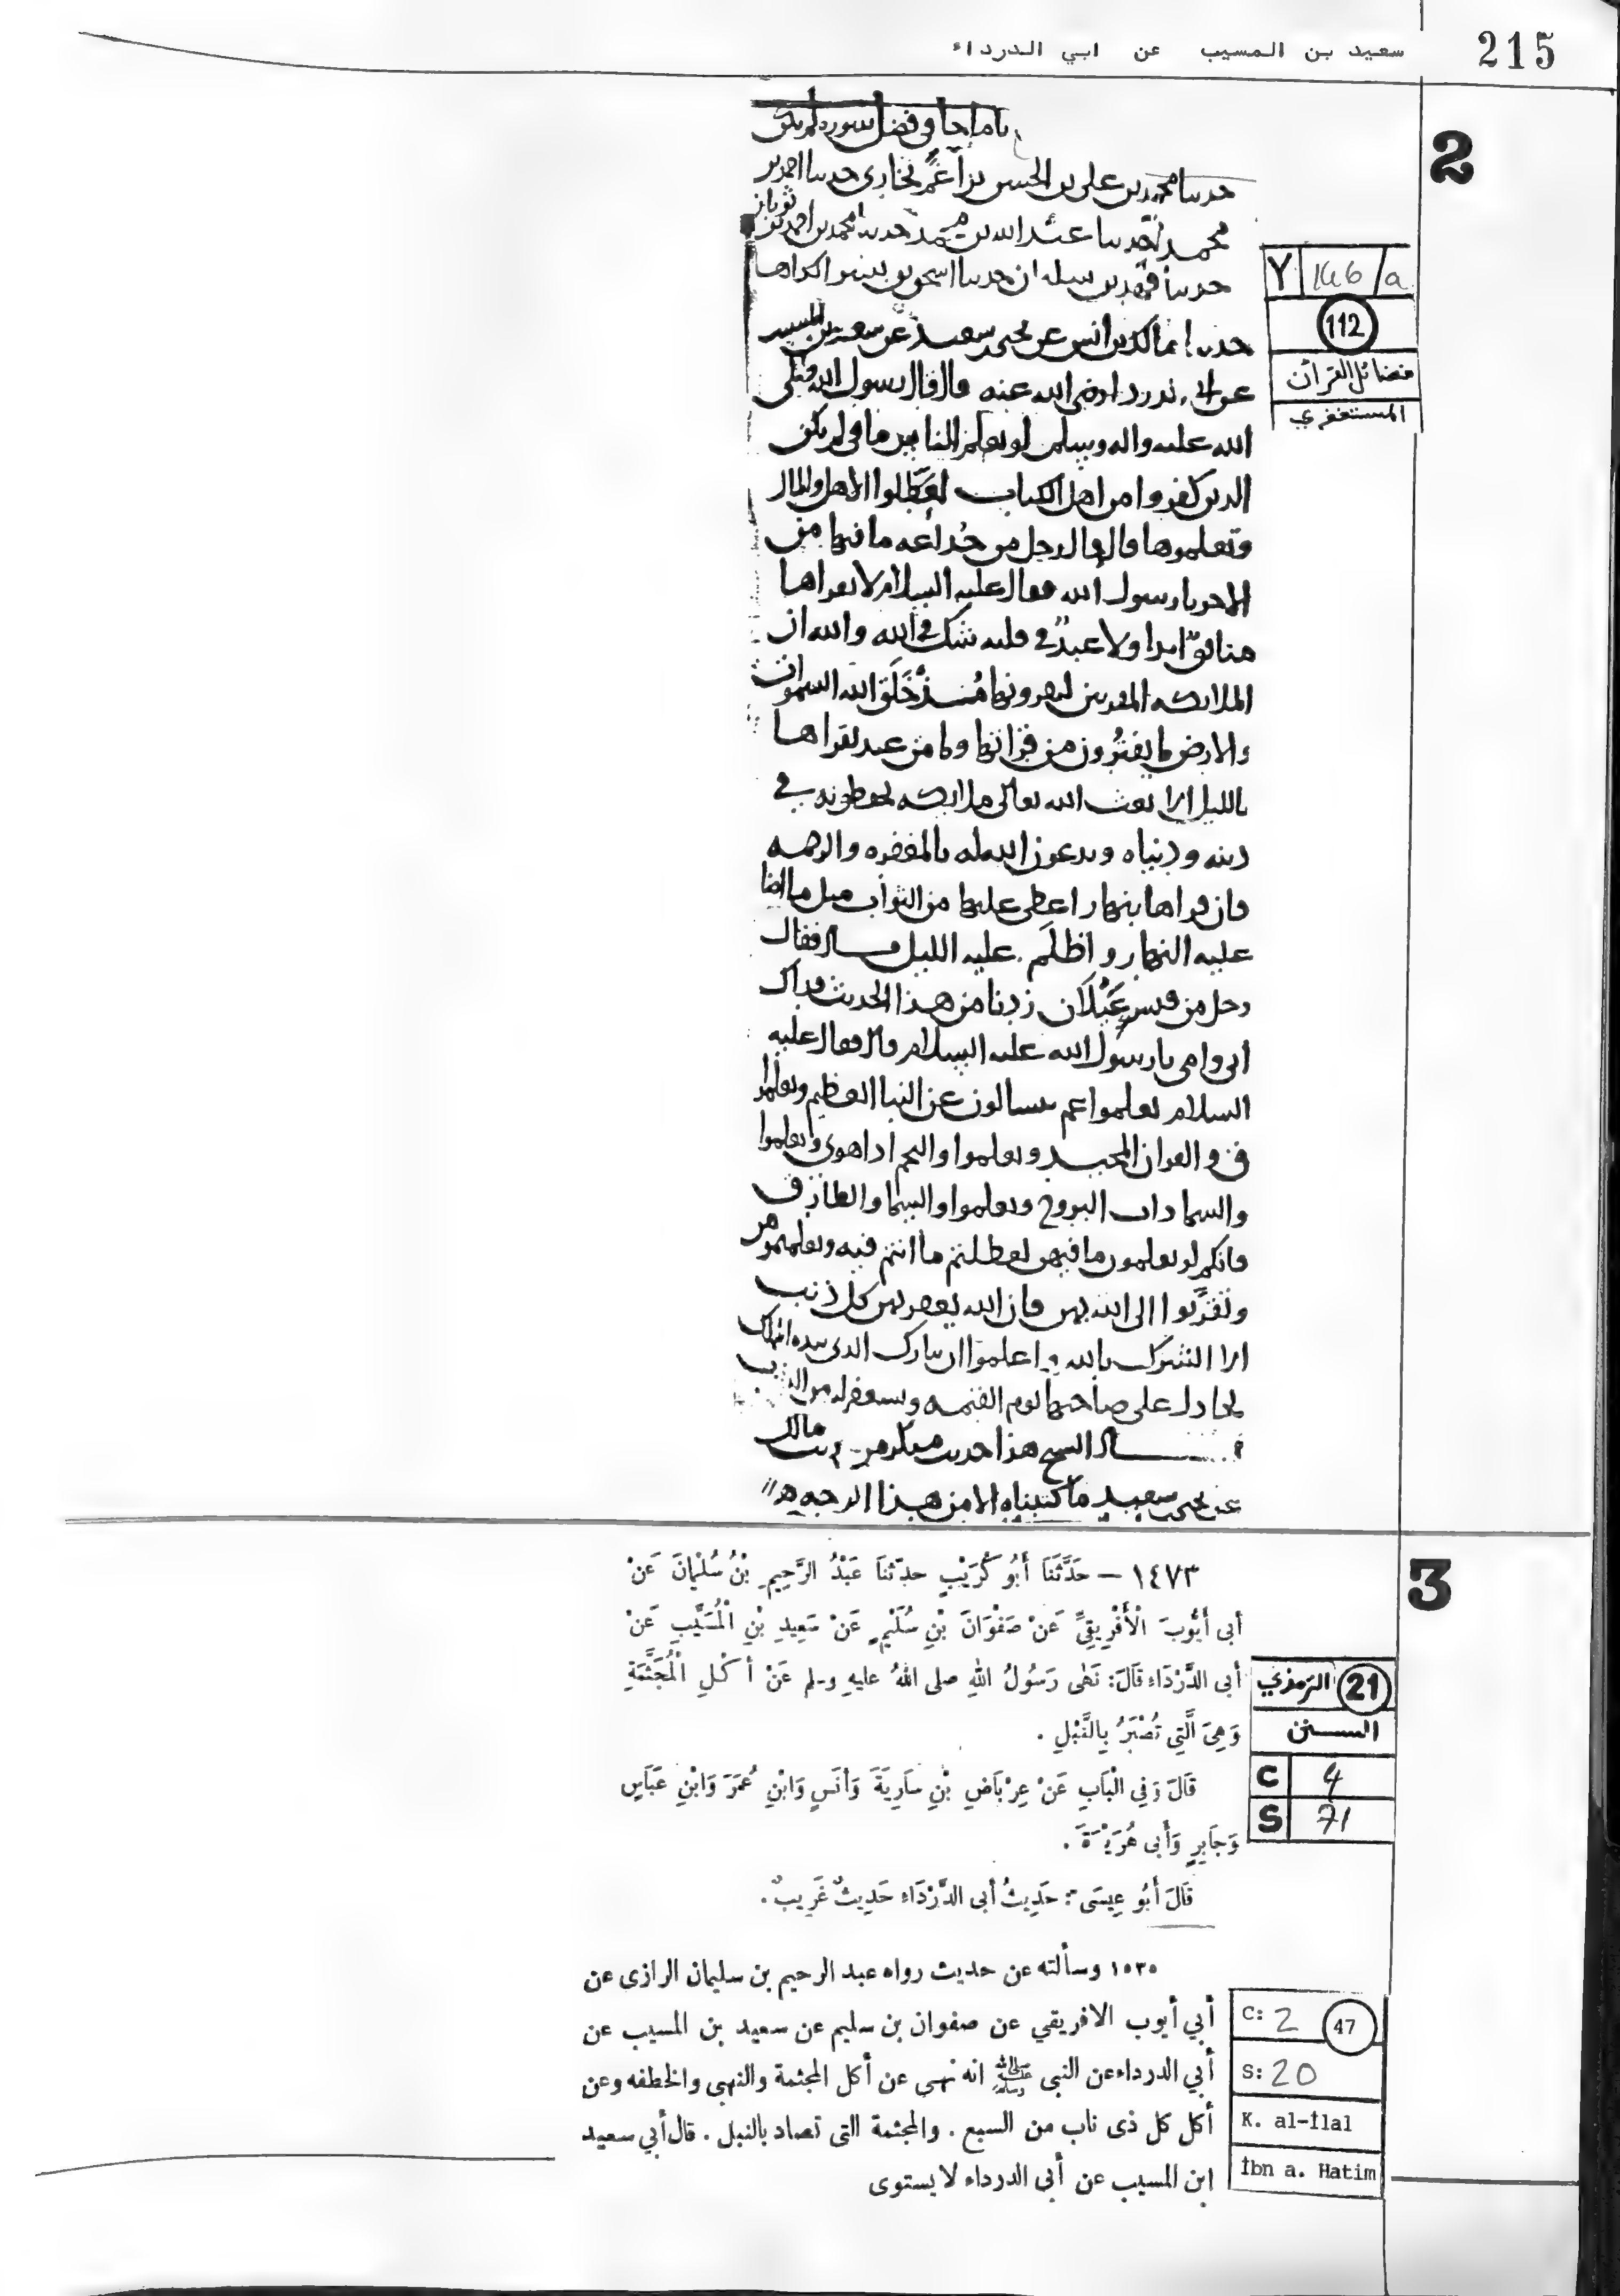 215
سعيد بن المسيب عن ابي الدرداء
2
باب ما جا في فضل سوره لم يكن
حدثنا محمد بن علي بن الحسين بخارى حدثنا احمد بن
محمد حدثنا عبد الله بن حدثنا محمد بن احمد بن ثوبان
حدثنا فهد بن سليمان حدثنا اسحق بن بشر
حدثنا مالك بن انس عن يحيى بن سعيد عن سعيد بن المسيب
عن ابي الدرداء رضي الله عنه قال قال رسول الله صلى
الله عليه واله وسلم لو يعلم الناس ما في لم يكن
الذين كفروا من اهل الكتاب لعَطَّلوا الاهل والمال
وتعلموها قال فقال رجل من خُزاعه ما فيها من
الاجر يا رسول الله فقال عليه السلام لا يقراها
منافق ابدا ولا عبدٌ في قلبه شك في الله والله ان
الملائكه المقربين ليقرونها مُنذُ خَلَقَ الله السموات
والارض ما يفترُون من قراتها وما من عبد يقراها
بالليل الا بعث الله تعالى ملائكه يحفظونه في
دينه ودنياه ويدعون الله له بالمغفره والرحمه
فان قراها بنهار اعطى عليها من الثواب مثل ما اضا
عليه النهار واظلَم عليه الليل قال فقال
رجل من قيس عَيْلَان زدنا من هذا الحديث فداك
ابي وامي يا رسول الله عليه السلام قال فقال عليه
السلام تعلموا عم يتسالون عن النبا العظيم وتعلموا
ق والقران المجيد وتعلموا والنجم اذا هوى وتعلموا
والسما ذات البروج وتعلموا والسما والطارق
فانكم لو تعلمون ما فيهن لعطلتم ما انتم فيه وتعلمتموهن
وتقرَّبوا الى الله بهن فان الله يغفر بهن كل ذنب
الا الشرك بالله واعلموا ان تبارك الذي بيده الملك
يجادل على صاحبها يوم القيمه ويستغفر له من الذنب
قال الشيخ هذا حديث منكر من حديث مالك
عن يحيى بن سعيد ما كتبناه الا من هذا الوجه
Y 146/a
112
فضائل القرآن
المستغفري
3
١٤٧٣ – حَدَّثَنَا أَبُو كُرَيْبٍ حدّثنا عَبْدُ الرَّحِيمِ بْنُ سُلَيْمانَ عَنْ
أبى أَيُّوبَ الْأَفْرِيقِيِّ عَنْ صَفْوَانَ بْنِ سُلَيْمٍ عَنْ سَعِيدِ بْنِ الْمُسَيَّبِ عَنْ
أبى الدَّرْدَاءِ قَالَ: نَهٰى رَسُولُ اللهِ صلى اللهُ عليهِ وسلم عَنْ أَكْلِ الْمُجَثَّمَةِ
وَهِيَ الَّتِي تُصْبَرُ بِالنَّبْلِ .
قَالَ وَفِي الْبَابِ عَنْ عِرْبَاضِ بْنِ سَارِيَةَ وَأَنَسٍ وَابْنِ عُمَرَ وَابْنِ عَبَّاسٍ
وَجَابِرٍ وَأَبى هُرَيْرَةَ .
قَالَ أَبُو عِيسَى : حَدِيثُ أبى الدَّرْدَاءِ حَدِيثٌ غَرِيبٌ .
21 الترمذي
السنن
C 4
S 71
١٥٣٥ وسألته عن حديث رواه عبد الرحيم بن سليمان الرازى عن
أبي أيوب الافريقي عن صفوان بن سليم عن سعيد بن المسيب عن
أبي الدرداء عن النبى ﷺ انه نهى عن أكل المجثمة والنهبى والخطفه وعن
أكل كل ذى ناب من السبع . والمجثمة التى تصاد بالنبل . قال أبي سعيد
ابن المسيب عن أبى الدرداء لا يستوى
C: 2 47
S: 20
K. al-İlal
İbn a. Hatim